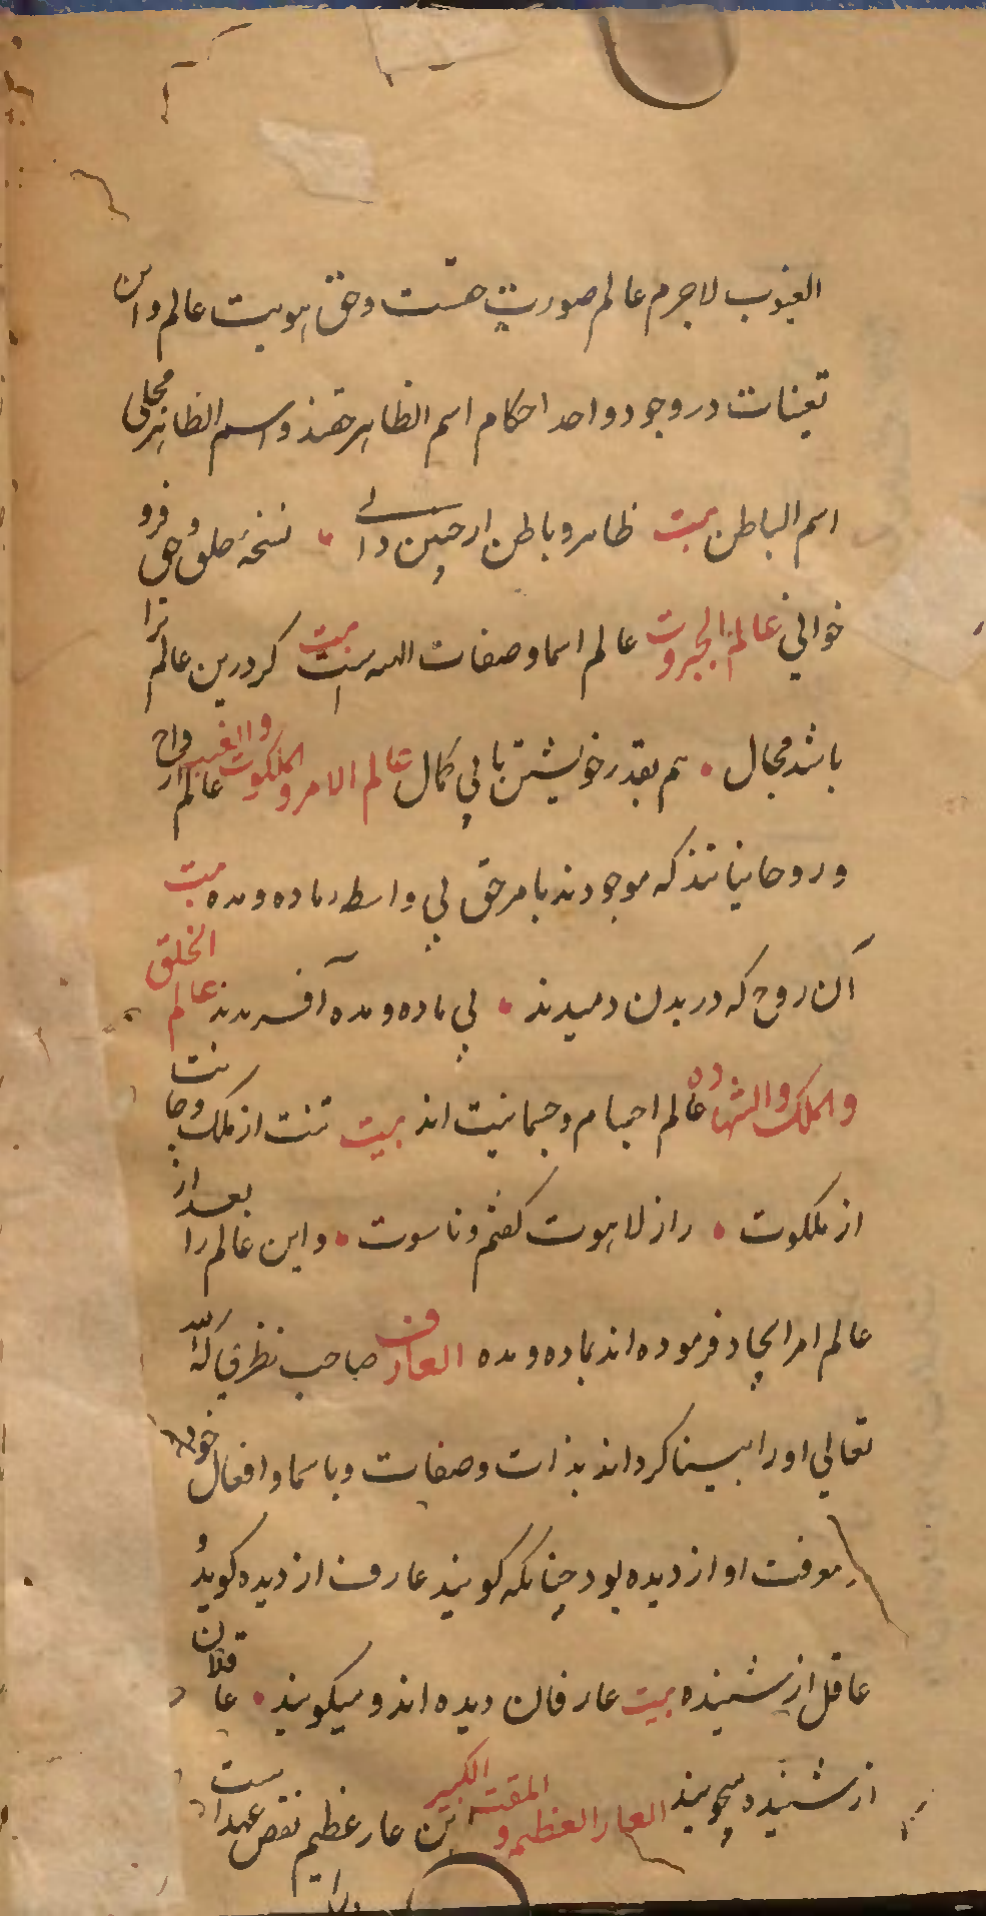 الغیوب لاجرم عالم صورت حقست و حق هویت عالم و این
تعینات در وجود واحد احکام اسم الظاهر حقند و اسم الظاهر مجلی
اسم الباطن بیت ظاهر و باطن ار چنین دانی • نسخهٔ خلق و حق فرو
خوانی عالم الجبروت عالم اسما و صفات الهی است بیت کر درین عالم ترا
باشد مجال • هم بقدر خویشتن یابی کمال عالم الامر و الملکوت و الغیب عالم ارواح
و روحانیانند که موجودند بامر حق بی واسطه ماده و مده بیت
آن روح که در بدن دمیدند • بی ماده و مده آفریدند عالم الخلق
و الملک و الشهادة عالم اجسام و جسمانیت اند بیت تنت از ملک و جانت
از ملکوت • راز لاهوت کفتم و ناسوت • و این عالم را بعد از
عالم امر ایجاد فرموده اند بماده و مده العارف صاحب نظری که الله
تعالی او را بینا کرداند بذات و صفات و باسما و افعال خود
معرفت او از دیده بود چنانکه کویند عارف از دیده کوید و
عاقل از شنیده بیت عارفان دیده اند و میکویند • عاقلان
از شنیده میجویند العار العظیم و المقت الکبیر این عار عظیم نقض عهد است